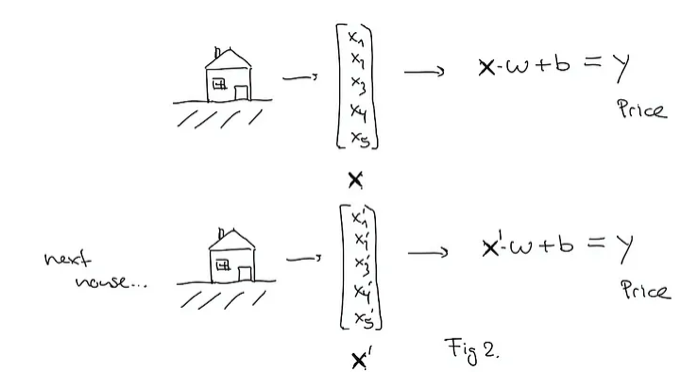 x₁
x₂
x₃
x₄
x₅
x
x·w+b = y
Price
next
house...
x₁'
x₂'
x₃'
x₄'
x₅'
x'
x'·w+b = y
Price
Fig 2.